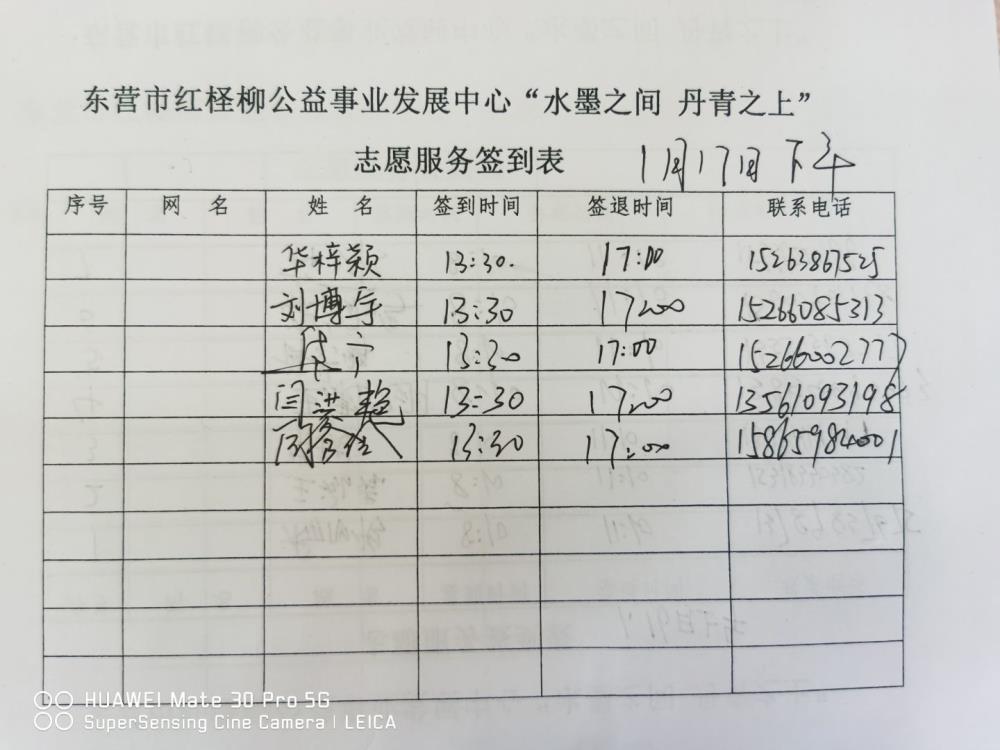 东营市红柽柳公益事业发展中心“水墨之间 丹青之上”
志愿服务签到表 1月17日 下午
序号 网 名 姓 名 签到时间 签退时间 联系电话
华梓颖 13:30. 17:00 15263867525
刘博宇 13:30 17:00 15266085313
13:30 17:00 15266002777
闫菱艳 13:30 17:00 13561093198
13:30 17:00
HUAWEI Mate 30 Pro 5G
SuperSensing Cine Camera | LEICA